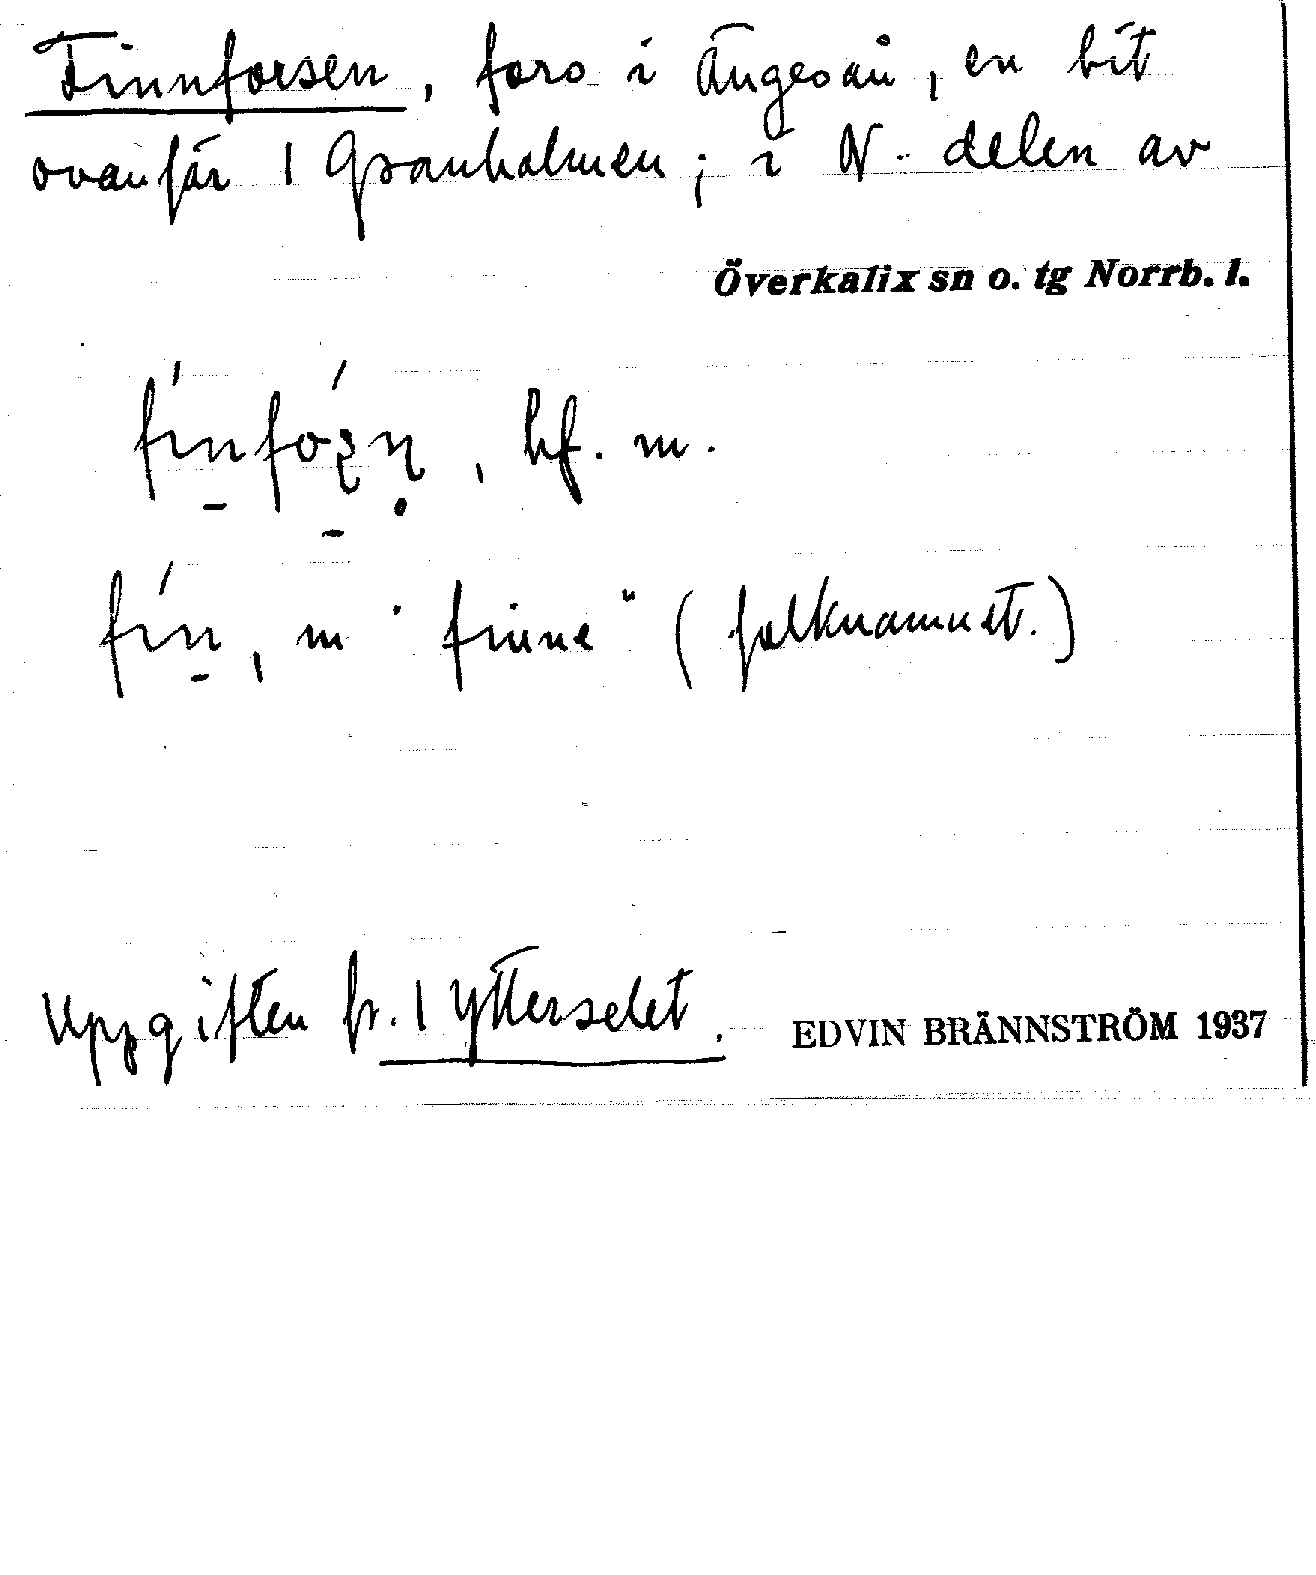 Finnforsen, fors i Ängesån, en bit
ovanför 1 Granholmen; i N. delen av
Överkalix sn o. tg Norrb. l.
, bf. m.
fín̠, m "finne" (folknamnet.)
Uppgiften fr. 1 Ytterselet.
EDVIN BRÄNNSTRÖM 1937